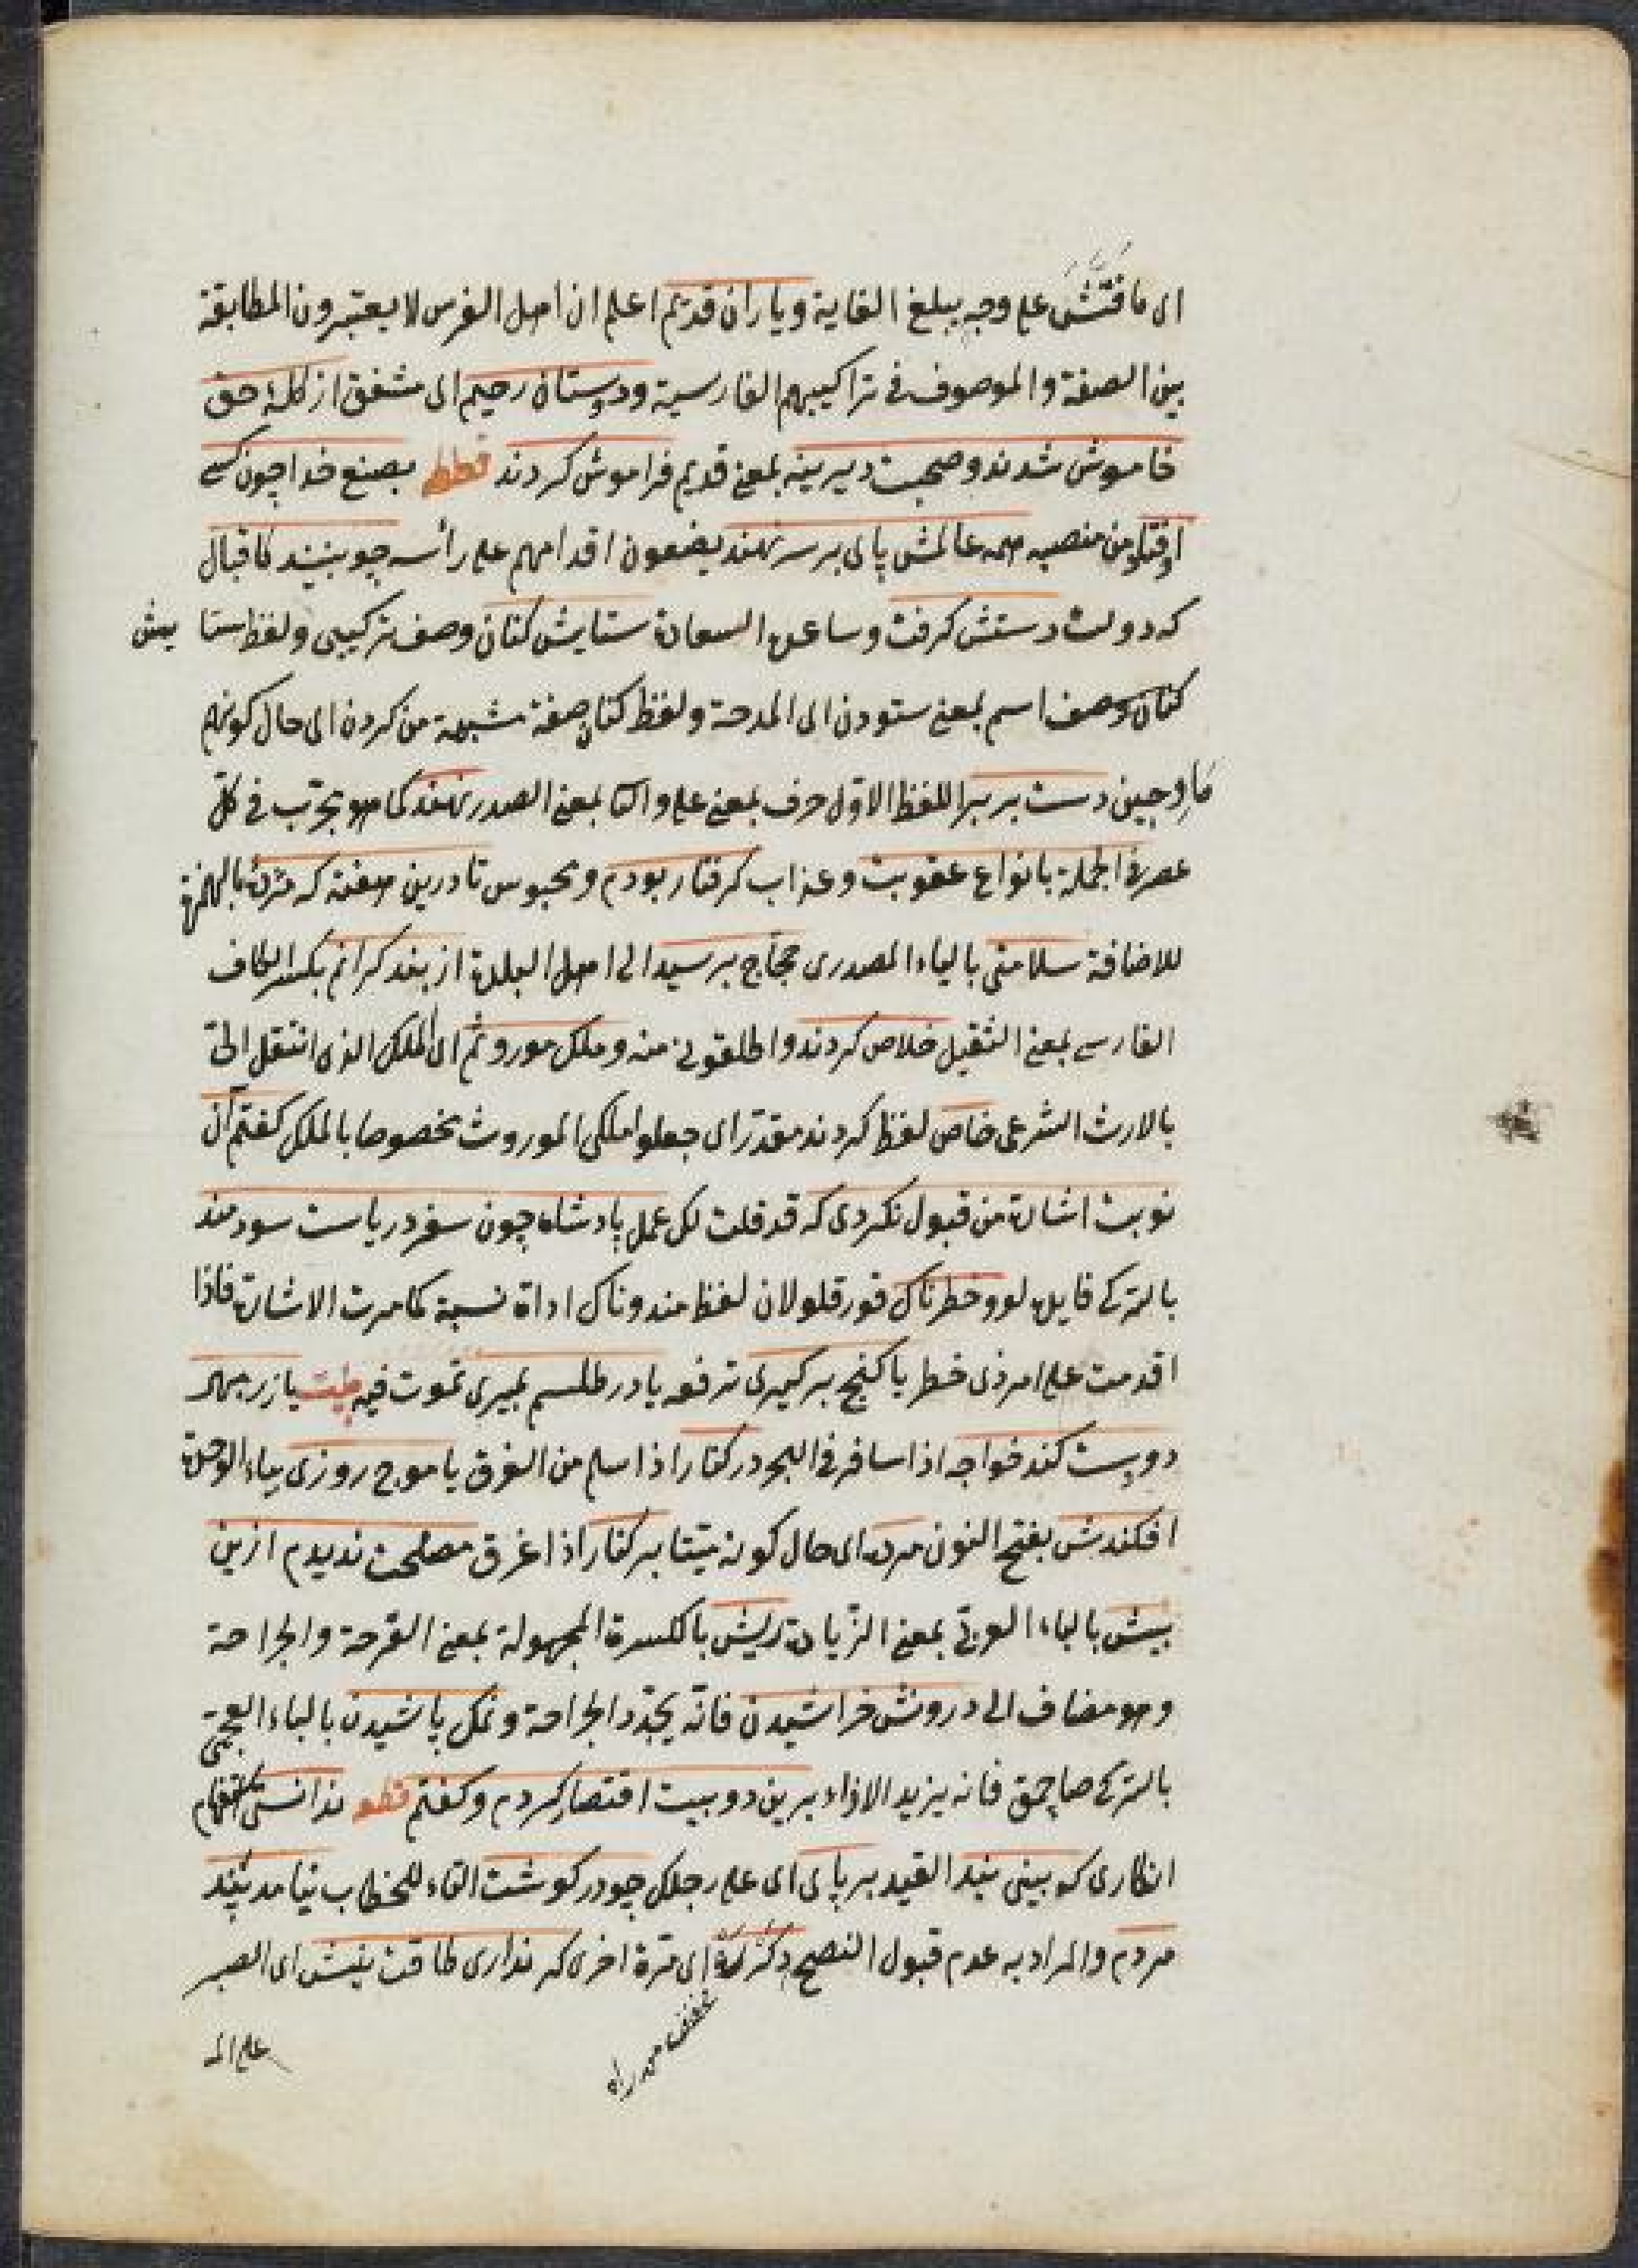 ای ما فتّش علی وجه یبلغ الغایة و یاران قدیم اعلم ان اهل الفرس لا یعتبرون المطابقة
بین الصفة و الموصوف فی تراکیبهم الفارسیة و دوستان رحیم ای مشفق از کلمهٔ حق
خاموش شدند و صحبت دیرینه بمعنی قدیم فراموش کردند قطعه بصنع خدا چون کسی
اوفتاد من منصبه همه عالمش پای بر سر نهند یضعون اقدامهم علی رأسه چو بینند کاقبال
که دولت دستش کرفت و ساعده السعادة ستایش کنان وصف ترکیبی و لفظ ستا یش
کنان وصف اسم بمعنی ستودن ای المدحة و لفظ کنان صفة مشبهة من کردن ای حال کونهم
مادحین دست بر بر اللفظ الاوّل حرف بمعنی علی و الثا بمعنی الصدر نهند کما هو مجرّب فی کلّ
عصر فی الجملة بانواع عقوبت و عذاب کرفتار بودم و محبوس تا درین هفته که مژدهٔ بالهمزة
للاضافة سلامتی بالیاء المصدری حجّاج برسید ای اهل البلدة از بند کرانم بکسر الکاف
الفارسی بمعنی الثقیل خلاص کردند و اطلقونی منه و ملک موروثم ای الملک الذی انتقل الیّ
بالارث الشرعی خاص لفظ کردند مقدّر ای جعلوا ملکی الموروث مخصوصا بالملک کفتم آن
نوبت اشارة من قبول نکردی که قد قلت لک عمل پادشاه چون سفر دریاست سودمند
بالترکی فایده لو و خطرناک قورقلو لان لفظ مند و ناک اداة نسبة کما مرت الاشارة فاذا
اقدمت علی امر ذی خطر یا کنج برکیری ترفعه یا در طلسم بمیری تموت فیه بیت یا زر بهر
دو دست کند خواجه اذا سافر فی البحر در کنار اذا سلم من الغرق یا موج روزی بیاء الوحدة
افکندش بفتح النون مرده ای حال کونه میّتا بر کنار اذا غرق مصلحت ندیدم ازین
بیش بالباء العربی بمعنی الزیادة ریش بالکسرة المجهولة بمعنی القرحة و الجراحة
و هو مضاف الی درونش خراشیدن فانّه یجدّد الجراحة و نمک پاشیدن بالباء العجمی
بالترکی صاچمق فانه یزید الاذاء برین دو بیت اقتصار کردم و کفتم قطعه ندانستی استفهام
انکاری که بینی بند القید بر پای ای علی رجلک چو در کوشت التاء للخطاب نیامد پند
مردم و المراد به عدم قبول النصح دکر ره ای مرّة اخری کر نداری طاقت نیش ای الصبر
مخفف
علی الم